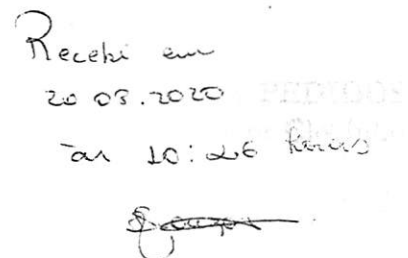 Recebi em
20 03.2020
às 10:26 horas